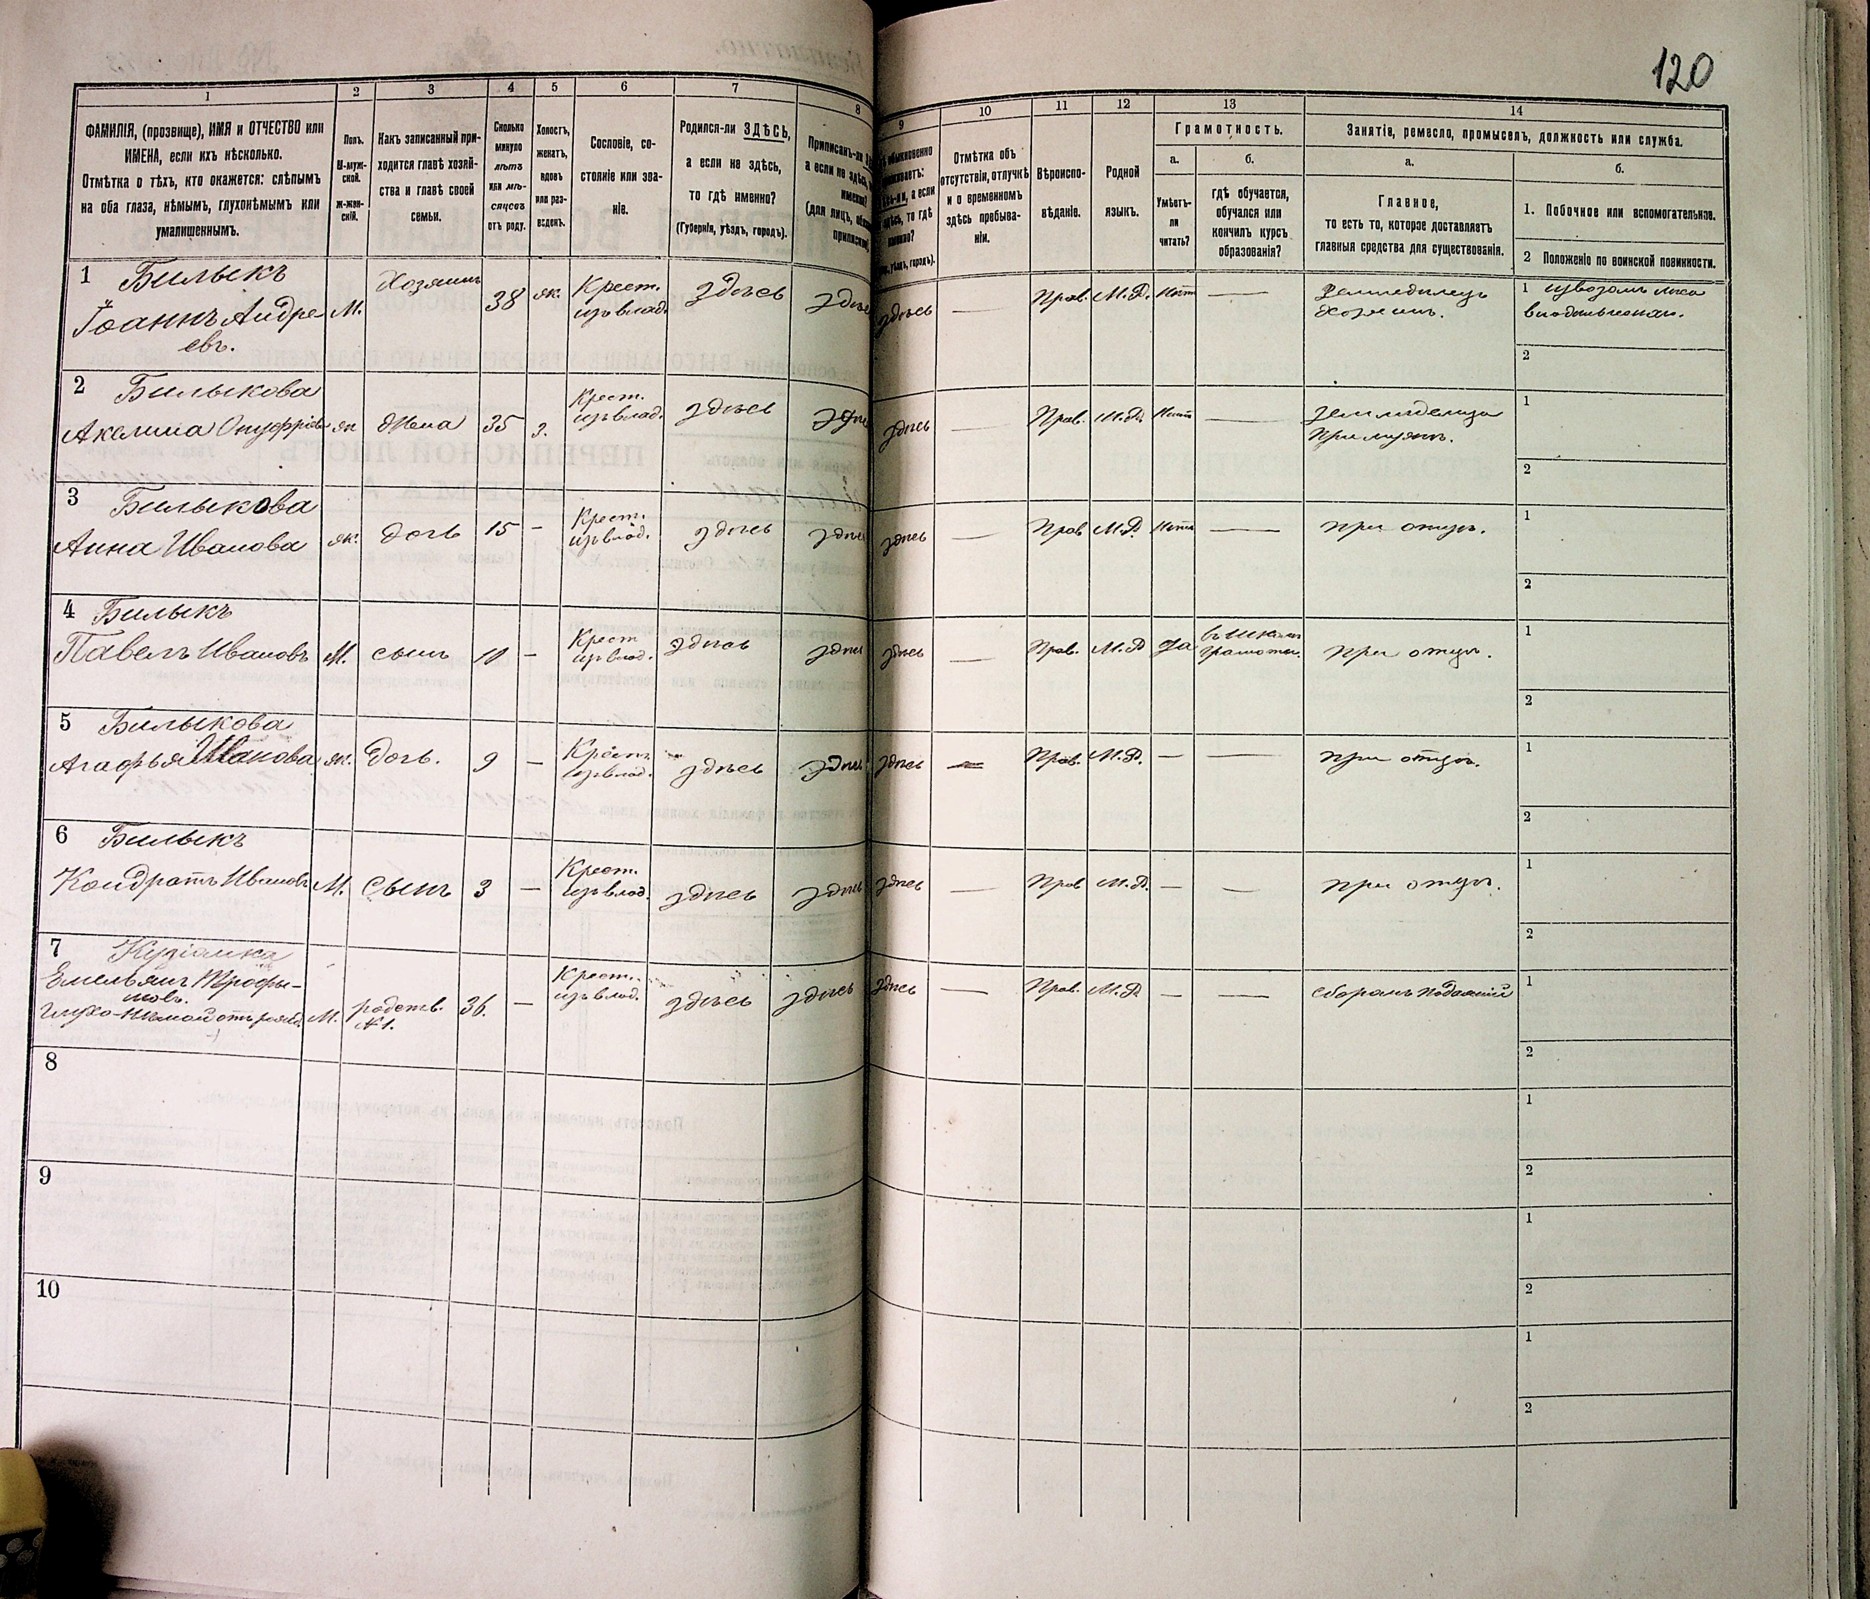 120
1 2 3 4 5 6 7 8 9 10 11 12 13 14
ФАМИЛІЯ, (прозвище), ИМЯ и ОТЧЕСТВО или
ИМЕНА, если ихъ нѣсколько.
Отмѣтка о тѣхъ, кто окажется: слѣпымъ
на оба глаза, нѣмымъ, глухонѣмымъ или
умалишеннымъ.
Полъ.
М-муж-
ской.
Ж-жен-
скій.
Какъ записанный при-
ходится главѣ хозяй-
ства и главѣ своей
семьи.
Сколько
минуло
лѣтъ
или мѣ-
сяцевъ
отъ роду.
Холостъ,
женатъ,
вдовъ
или раз-
веденъ.
Сословіе, со-
стояніе или зва-
ніе.
Родился-ли ЗДѢСЬ,
а если не здѣсь,
то гдѣ именно?
(Губернія, уѣздъ, городъ).
Приписанъ-ли
а если не здѣсь,
(для лицъ,
Отмѣтка объ
отсутствіи, отлучкѣ
и о временномъ
здѣсь пребыва-
ніи.
Вѣроиспо-
вѣданіе.
Родной
языкъ.
Грамотность.
а.
Умѣетъ-
ли
читать?
б.
гдѣ обучается,
обучался или
кончилъ курсъ
образованія?
Занятіе, ремесло, промыселъ, должность или служба.
а.
Главное,
то есть то, которое доставляетъ
главныя средства для существованія.
б.
1. Побочное или вспомогательное.
2 Положеніе по воинской повинности.
1 Билыкъ
Іоаннъ Андре
евъ.
М. Хозяинъ 38 ж. Крест. изъ влад. здѣсь здѣсь здѣсь — Прав. М.Р. Нѣт — Земледѣлецъ
хозяинъ.
1
2
2 Билыкова
Акелина Онуфріева жн жена 35 з. Крест. изъ влад. здѣсь здѣсь здѣсь — Прав. М.Р. Нѣт —
при мужѣ.
1
2
3 Билыкова
Анна Иванова ж. дочь 15 – Крест. изъ влад. здѣсь здѣсь здѣсь — Прав М.Р. Нѣт — при отцѣ.
1
2
4 Билыкъ
Павелъ Ивановъ М. сынъ 10 – Крест изъ влад. здѣсь здѣсь здѣсь — Прав. М.Р да въ школѣ
грамоты. при отцѣ.
1
2
5 Билыкова
Агафья Иванова ж. дочь. 9 – Крест. изъ влад. здѣсь здѣсь здѣсь — Прав. М.Р. — — при отцѣ.
1
2
6 Билыкъ
Кондратъ Ивановъ М. Сынъ 3 – Крест. изъ влад. здѣсь здѣсь здѣсь — Прав М.Р. — — при отцѣ.
1
2
7
Емельянъ Трофи-
мовъ.
глухо-нѣмой отъ рожд. М. родств.
№1. 36. – Крест. изъ влад. здѣсь здѣсь здѣсь — Прав. М.Р — — сборомъ подаяній
1
2
8
1
2
9
1
2
10
1
2